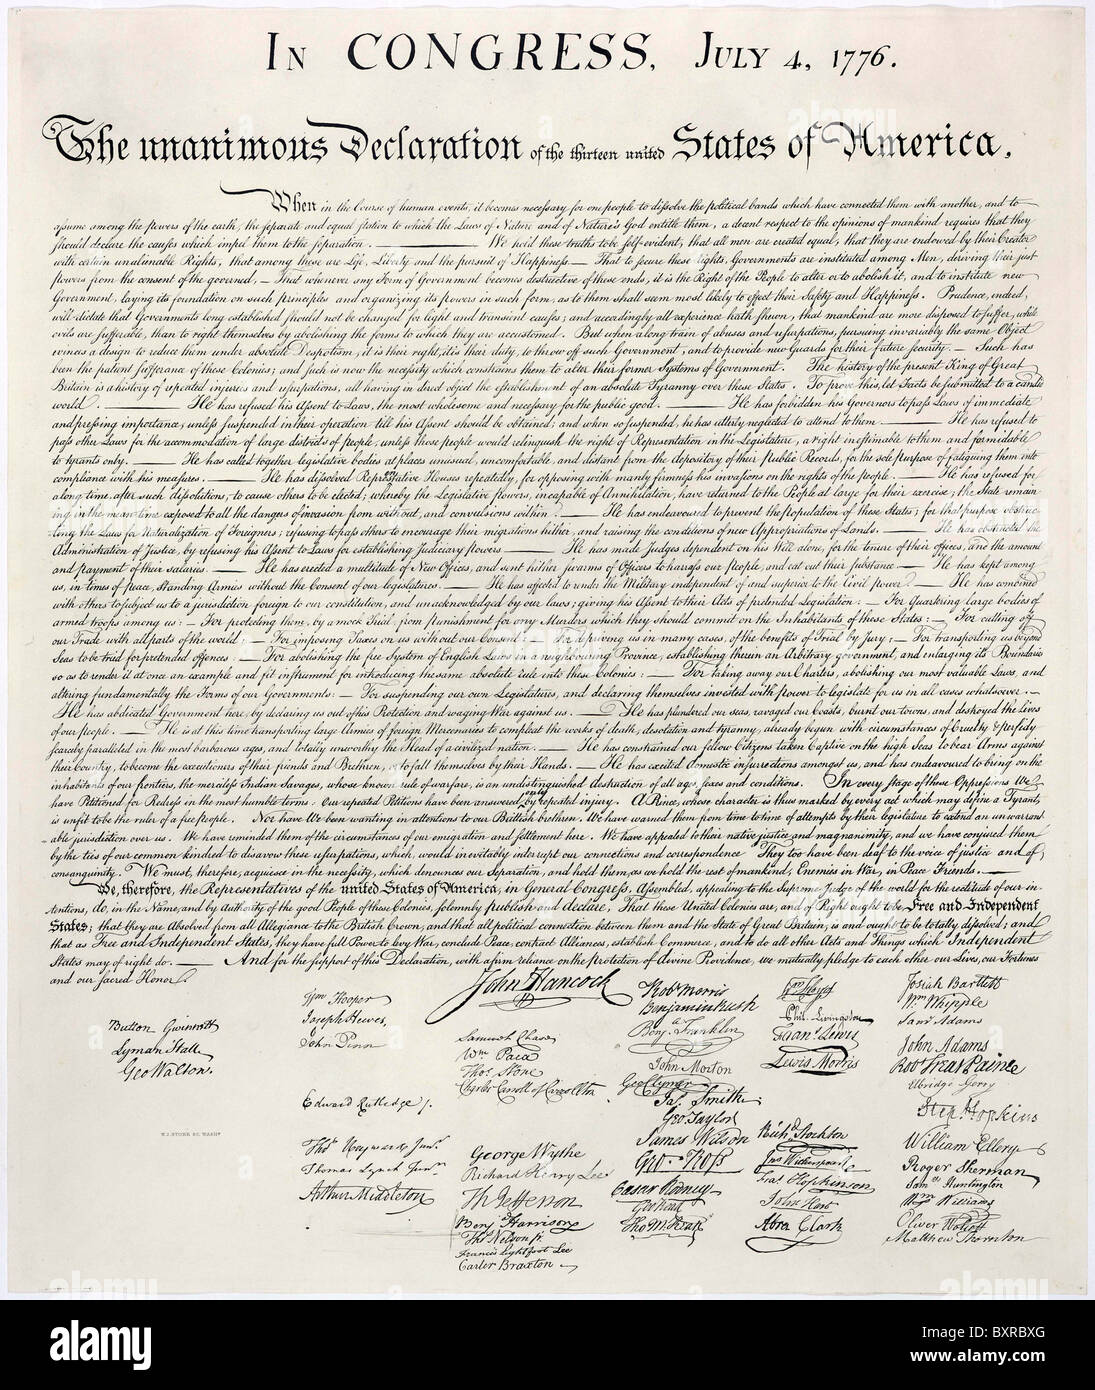 IN CONGRESS, JULY 4, 1776.
The unanimous Declaration of the thirteen united States of America,
When in the Course of human events, it becomes necessary for one people to dissolve the political bands which have connected them with another, and to
assume among the powers of the earth, the separate and equal station to which the Laws of Nature and of Nature's God entitle them, a decent respect to the opinions of mankind requires that they
should declare the causes which impel them to the separation. —— We hold these truths to be self-evident, that all men are created equal, that they are endowed by their Creator
with certain unalienable Rights, that among these are Life, Liberty and the pursuit of Happiness.— That to secure these rights, Governments are instituted among Men, deriving their just
powers from the consent of the governed, — That whenever any Form of Government becomes destructive of these ends, it is the Right of the People to alter or to abolish it, and to institute new
Government, laying its foundation on such principles and organizing its powers in such form, as to them shall seem most likely to effect their Safety and Happiness. Prudence, indeed,
will dictate that Governments long established should not be changed for light and transient causes; and accordingly all experience hath shewn, that mankind are more disposed to suffer, while
evils are sufferable, than to right themselves by abolishing the forms to which they are accustomed. But when a long train of abuses and usurpations, pursuing invariably the same Object
evinces a design to reduce them under absolute Despotism, it is their right, it is their duty, to throw off such Government, and to provide new Guards for their future security. — Such has
been the patient sufferance of these Colonies; and such is now the necessity which constrains them to alter their former Systems of Government. The history of the present King of Great
Britain is a history of repeated injuries and usurpations, all having in direct object the establishment of an absolute Tyranny over these States. To prove this, let Facts be submitted to a candid
world. —— He has refused his Assent to Laws, the most wholesome and necessary for the public good. —— He has forbidden his Governors to pass Laws of immediate
and pressing importance, unless suspended in their operation till his Assent should be obtained; and when so suspended, he has utterly neglected to attend to them. —— He has refused to
pass other Laws for the accommodation of large districts of people, unless those people would relinquish the right of Representation in the Legislature, a right inestimable to them and formidable
to tyrants only. —— He has called together legislative bodies at places unusual, uncomfortable, and distant from the depository of their Public Records, for the sole purpose of fatiguing them into
compliance with his measures. —— He has dissolved Representative Houses repeatedly, for opposing with manly firmness his invasions on the rights of the people. —— He has refused for
a long time, after such dissolutions, to cause others to be elected; whereby the Legislative powers, incapable of Annihilation, have returned to the People at large for their exercise; the State remain-
ing in the mean time exposed to all the dangers of invasion from without, and convulsions within. —— He has endeavoured to prevent the population of these States; for that purpose obstruc-
ting the Laws for Naturalization of Foreigners; refusing to pass others to encourage their migrations hither, and raising the conditions of new Appropriations of Lands. —— He has obstructed the
Administration of Justice, by refusing his Assent to Laws for establishing Judiciary powers. —— He has made Judges dependent on his Will alone, for the tenure of their offices, and the amount
and payment of their salaries. —— He has erected a multitude of New Offices, and sent hither swarms of Officers to harrass our people, and eat out their substance. —— He has kept among
us, in times of peace, Standing Armies without the Consent of our legislatures. —— He has affected to render the Military independent of and superior to the Civil power. —— He has combined
with others to subject us to a jurisdiction foreign to our constitution, and unacknowledged by our laws; giving his Assent to their Acts of pretended Legislation: — For Quartering large bodies of
armed troops among us: — For protecting them, by a mock Trial, from punishment for any Murders which they should commit on the Inhabitants of these States: — For cutting off
our Trade with all parts of the world: — For imposing Taxes on us without our Consent: — For depriving us in many cases, of the benefits of Trial by Jury; — For transporting us beyond
Seas to be tried for pretended offences: — For abolishing the free System of English Laws in a neighbouring Province, establishing therein an Arbitrary government, and enlarging its Boundaries
so as to render it at once an example and fit instrument for introducing the same absolute rule into these Colonies: — For taking away our Charters, abolishing our most valuable Laws, and
altering fundamentally the Forms of our Governments: — For suspending our own Legislatures, and declaring themselves invested with power to legislate for us in all cases whatsoever. —
He has abdicated Government here, by declaring us out of his Protection and waging War against us. —— He has plundered our seas, ravaged our Coasts, burnt our towns, and destroyed the lives
of our people. — He is at this time transporting large Armies of foreign Mercenaries to compleat the works of death, desolation and tyranny, already begun with circumstances of Cruelty & perfidy
scarcely paralleled in the most barbarous ages, and totally unworthy the Head of a civilized nation. —— He has constrained our fellow Citizens taken Captive on the high Seas to bear Arms against
their Country, to become the executioners of their friends and Brethren, or to fall themselves by their Hands. — He has excited domestic insurrections amongst us, and has endeavoured to bring on the
inhabitants of our frontiers, the merciless Indian Savages, whose known rule of warfare, is an undistinguished destruction of all ages, sexes and conditions. In every stage of these Oppressions We
have Petitioned for Redress in the most humble terms: Our repeated Petitions have been answered only by repeated injury. A Prince, whose character is thus marked by every act which may define a Tyrant,
is unfit to be the ruler of a free people. Nor have We been wanting in attentions to our Brittish brethren. We have warned them from time to time of attempts by their legislature to extend an unwarrant-
able jurisdiction over us. We have reminded them of the circumstances of our emigration and settlement here. We have appealed to their native justice and magnanimity, and we have conjured them
by the ties of our common kindred to disavow these usurpations, which, would inevitably interrupt our connections and correspondence. They too have been deaf to the voice of justice and of
consanguinity. We must, therefore, acquiesce in the necessity, which denounces our Separation, and hold them, as we hold the rest of mankind, Enemies in War, in Peace Friends. ——
We, therefore, the Representatives of the united States of America, in General Congress, Assembled, appealing to the Supreme Judge of the world for the rectitude of our in-
tentions, do, in the Name, and by Authority of the good People of these Colonies, solemnly publish and declare, That these United Colonies are, and of Right ought to be Free and Independent
States; that they are Absolved from all Allegiance to the British Crown, and that all political connection between them and the State of Great Britain, is and ought to be totally dissolved; and
that as Free and Independent States, they have full Power to levy War, conclude Peace, contract Alliances, establish Commerce, and to do all other Acts and Things which Independent
States may of right do. —— And for the support of this Declaration, with a firm reliance on the protection of divine Providence, we mutually pledge to each other our Lives, our Fortunes
and our sacred Honor.
Button Gwinnett
Lyman Hall
Geo Walton.
W.J. STONE SC. WASHN
Wm Hooper
Joseph Hewes,
John Penn
Edward Rutledge /.
Thos Heyward Junr.
Thomas Lynch Junr.
Arthur Middleton
John Hancock
Samuel Chase
Wm Paca
Thos Stone
Charles Carroll of Carrollton
George Wythe
Richard Henry Lee
Th Jefferson
Benj Harrison
Thos Nelson jr.
Francis Lightfoot Lee
Carter Braxton
Robt Morris
Benjamin Rush
Benj. Franklin
John Morton
Geo Clymer
Jas. Smith
Geo. Taylor
James Wilson
Geo. Ross
Caesar Rodney
Geo Read
Tho M:Kean
Wm Floyd
Phil. Livingston
Frans. Lewis
Lewis Morris
Richd. Stockton
Jno Witherspoon
Fras. Hopkinson
John Hart
Abra Clark
Josiah Bartlett
Wm. Whipple
Saml Adams
John Adams
Robt Treat Paine
Elbridge Gerry
Step. Hopkins
William Ellery
Roger Sherman
Samel Huntington
Wm Williams
Oliver Wolcott
Matthew Thornton
alamy
Image ID: BXRBXG
www.alamy.com